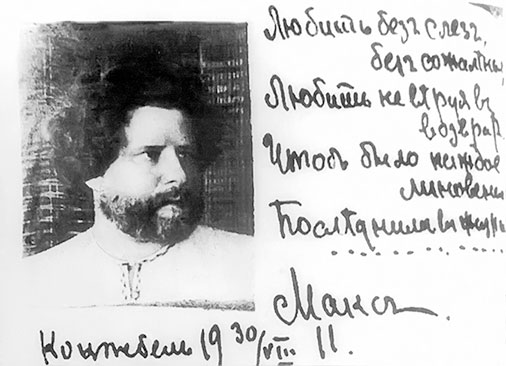 Любить безъ слезъ,
безъ сожалѣнья,
Любить не вѣруя въ
возврат
Чтобъ было каждое
мгновенье
Послѣднимъ въ жизни
. . . . . . . . . . . .
Максъ.
Коктебель 19 30/VIII 11.